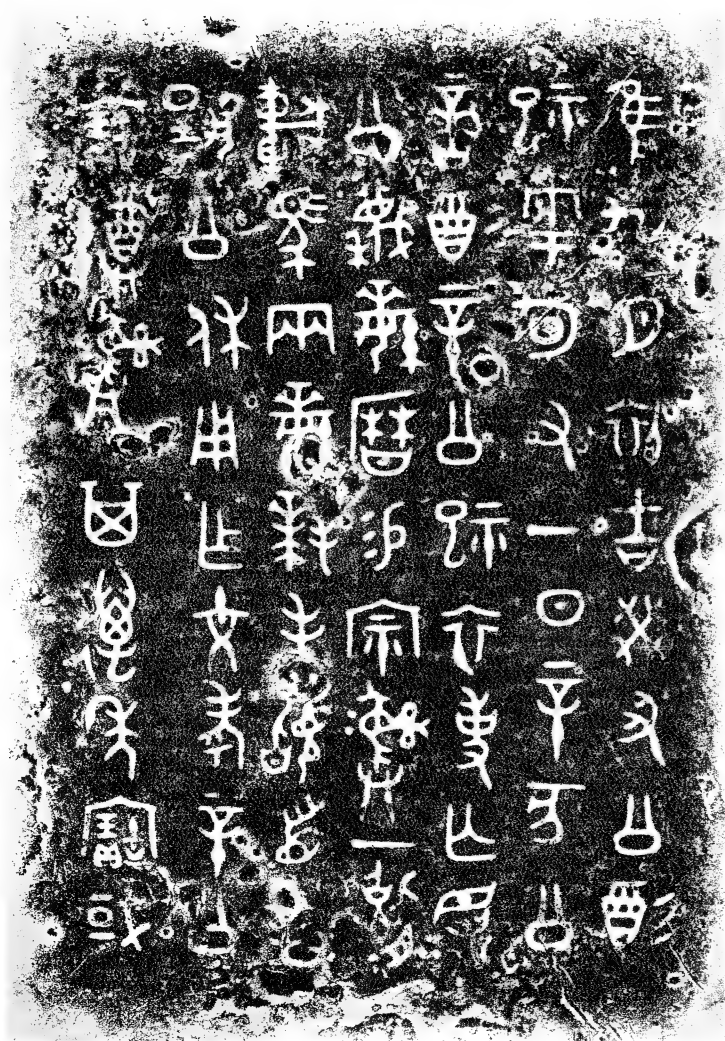 隹九月初吉癸丑公酌
祀雩旬又一日辛亥公
啻酌辛公祀衣事亡眚
公蔑繁曆易宗彝一肆
車馬兩繁拜手稽首對
揚公休用乍文考辛公
寶尊彝其萬年寶或